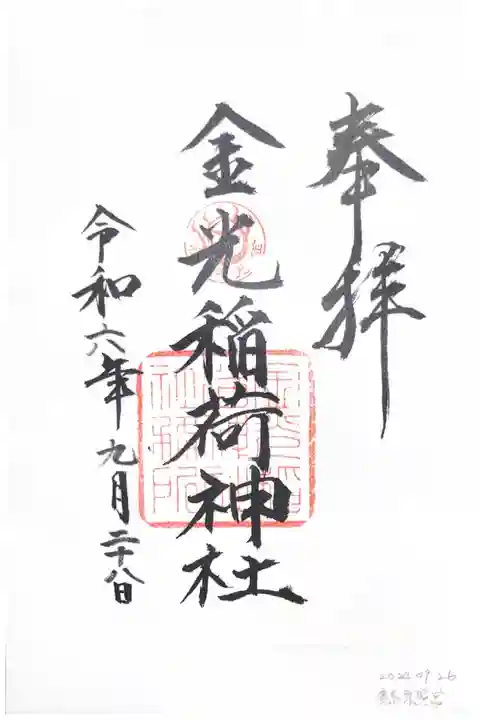 奉拝
金光稲荷神社
令和六年九月二十八日
2024 09 26